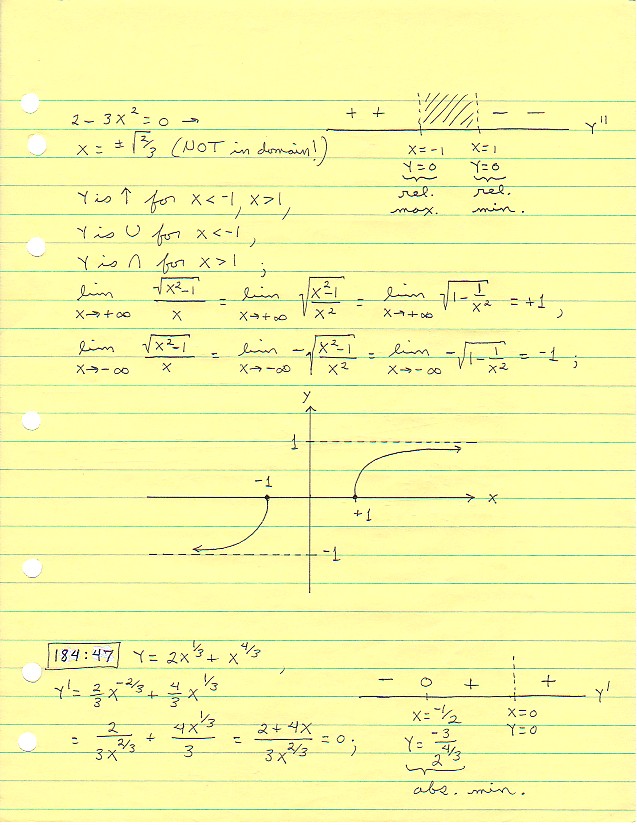 + + — — Y''
2 - 3X² = 0 →
X = ±√2/3 (NOT in domain!)
X=-1 X=1
Y=0 Y=0
rel. rel.
max. min.
Y is ↑ for X<-1, X>1,
Y is ∪ for X<-1,
Y is ∩ for X>1 ;
lim X→+∞ √(X²-1)/X = lim X→+∞ √((X²-1)/X²) = lim X→+∞ √(1-1/X²) = +1 ,
lim X→-∞ √(X²-1)/X = lim X→-∞ -√((X²-1)/X²) = lim X→-∞ -√(1-1/X²) = -1 ;
Y
1
-1
X
+1
-1
184:47 Y = 2X^(1/3) + X^(4/3) ,
Y' = 2/3 X^(-2/3) + 4/3 X^(1/3)
= 2/(3X^(2/3)) + 4X^(1/3)/3 = (2+4X)/(3X^(2/3)) = 0 ;
- 0 + + Y'
X=-1/2 X=0
Y=-3/2^(4/3) Y=0
abs. min.